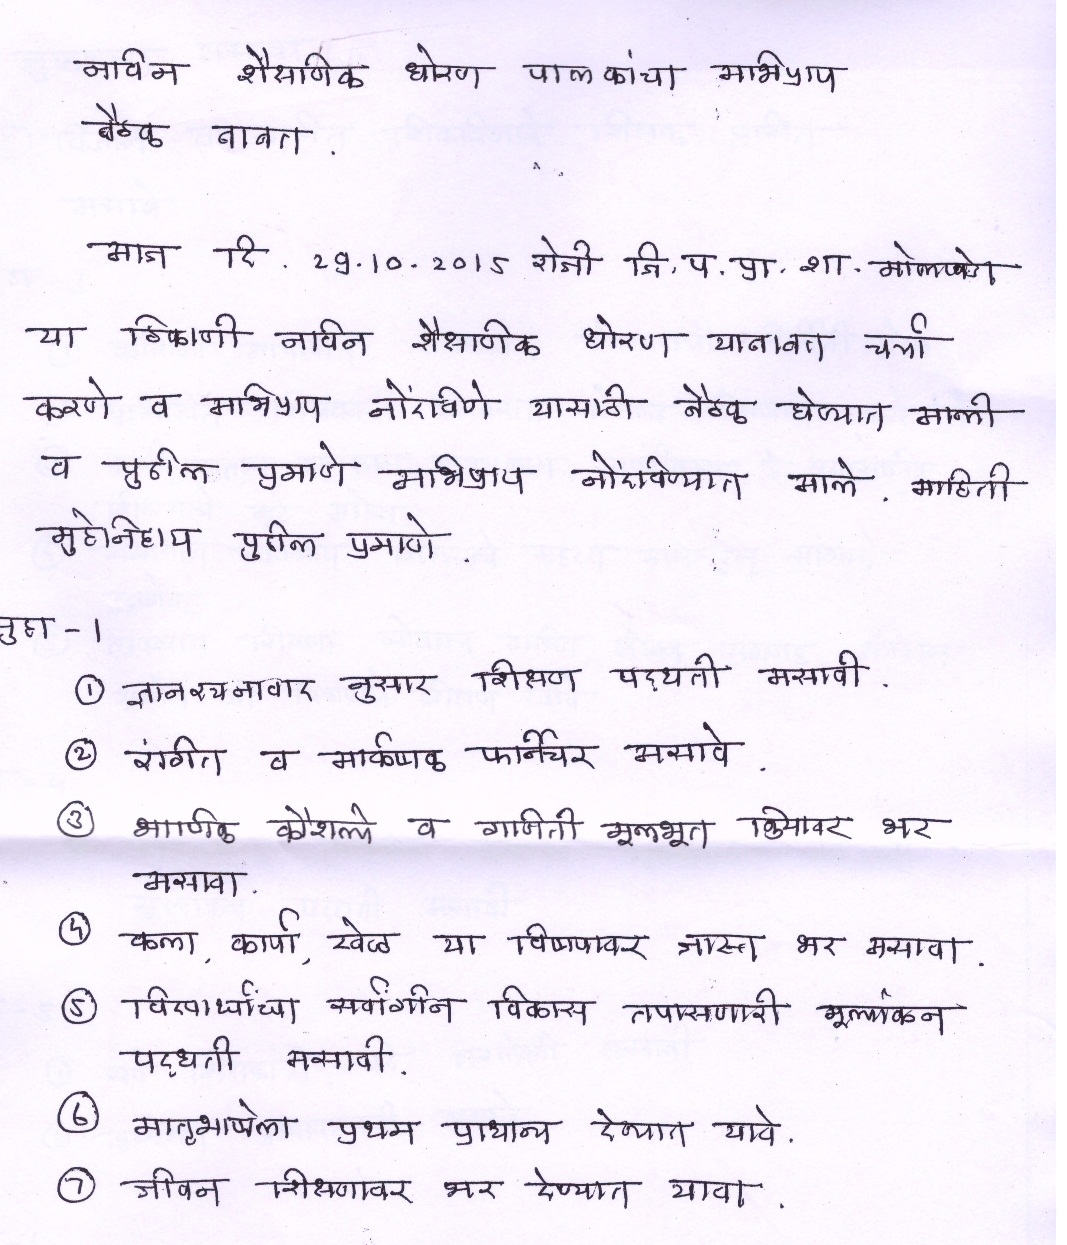 नाविन शैक्षणिक धोरण पालकांचा अभिप्राय
बैठक बाबत.
आज दि. 29.10.2015 रोजी जि.प.प्रा.शा.
या ठिकाणी नविन शैक्षणिक धोरण याबाबत चर्चा
करणे व अभिप्राय नोंदविणे यासाठी बैठक घेण्यात आली
व पुढील प्रमाणे अभिप्राय नोंदविण्यात आले. माहिती
मुद्देनिहाय पुढील प्रमाणे.
मुद्दा - 1
① ज्ञानरचनावाद नुसार शिक्षण पद्धती असावी.
② रंगीत व आर्कषक फर्निचर असावे.
③ भाषिक कौशल्ये व गणिती मूलभूत क्रियावर भर
असावा.
④ कला, कार्या, खेळ या विषयावर जास्त भर असावा.
⑤ विद्यार्थ्यांचा सर्वांगीन विकास तपासणारी मूल्यांकन
पद्धती असावी.
⑥ मातृभाषेला प्रथम प्राधान्य देण्यात यावे.
⑦ जीवन शिक्षणावर भर देण्यात यावा.